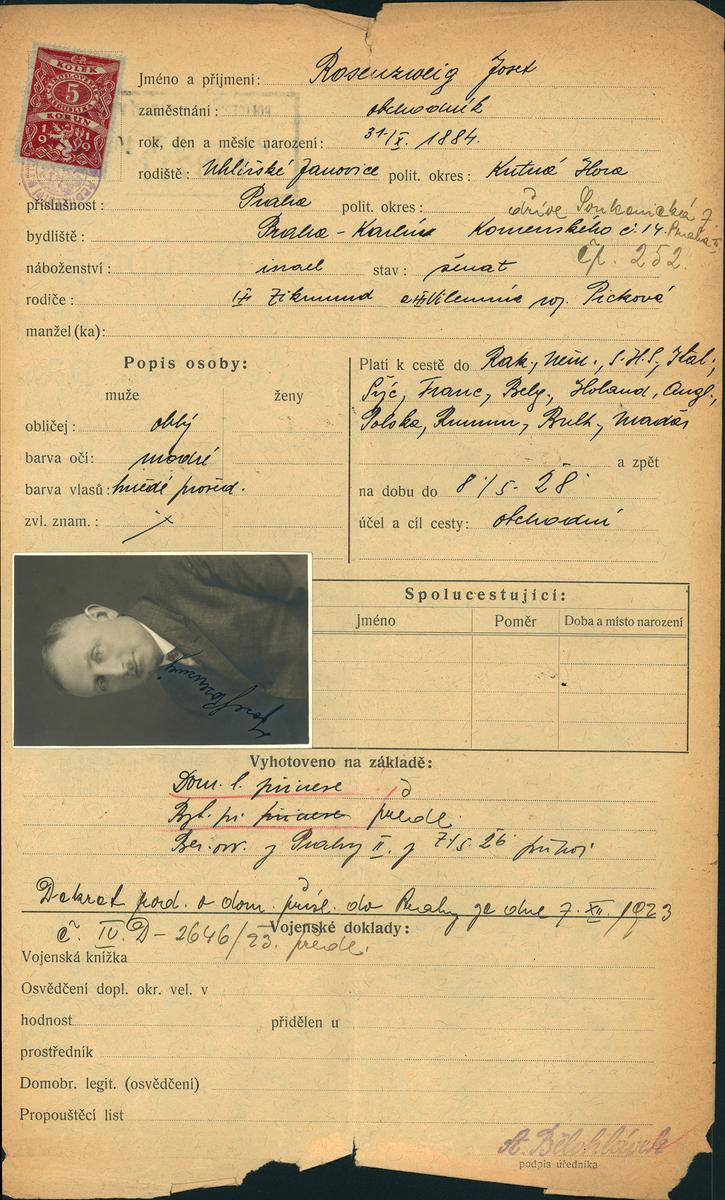 KOLEK
5
KORUN
1919
Jméno a příjmení: Rosenzweig Josef
zaměstnání: obchodník
rok, den a měsíc narození: 31/X. 1884.
rodiště: Uhlířské Janovice polit. okres: Kutná Hora
příslušnost: Praha polit. okres:
dříve Soukenická 7
bydliště: Praha - Karlín Komenského č. 14. Praha II
čp. 252
náboženství: israel stav: ženat
rodiče: Zikmund a Vilemína roz. Picková
manžel (ka):
Popis osoby:
muže ženy
obličej: oblý
barva očí: modré
barva vlasů: hnědé prošed.
zvl. znam.:
Platí k cestě do Rak., Něm., S.H.S., Ital.,
Švýc., Franc., Belg., Holand., Angl.,
Polska, Rumun., Bulh., Maďar
a zpět
na dobu do 8/5. 28
účel a cíl cesty: obchodní
Spolucestující:
Jméno Poměr Doba a místo narození
Josef Rosenzweig
Vyhotoveno na základě:
Dom. l. přinese
Byt. př. přinese předl.
Ber. osv. z Prahy II. z 7/5. 26 přiloj
Dekret pod. o dom. přísl. do Prahy ze dne 7. XII. 1923
Vojenské doklady:
č. IV. D - 2646/23. předl.
Vojenská knížka
Osvědčení dopl. okr. vel. v
hodnost přidělen u
prostředník
Domobr. legit. (osvědčení)
Propouštěcí list
A. Bělohlávek
podpis úředníka